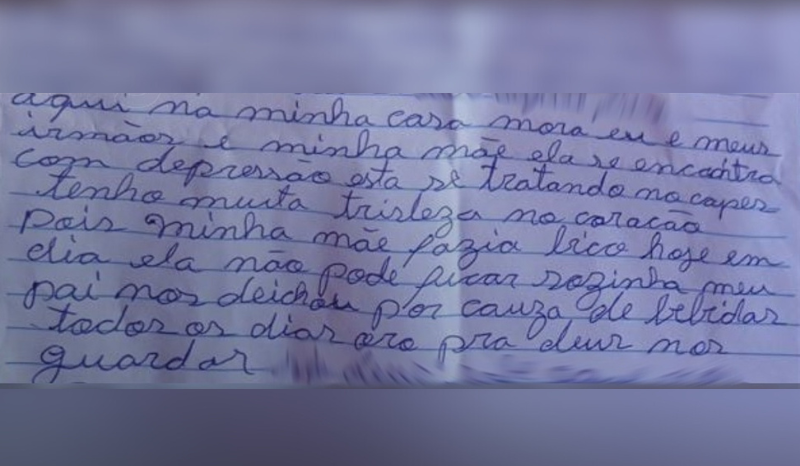 aqui na minha casa mora eu e meus
irmãos e minha mãe ela se encontra
com depressão esta se tratando no capes
tenho muita tristeza no coração
pois minha mãe fazia bico hoje em
dia ela não pode ficar sozinha meu
pai nos deichou por cauza de bebidas
todos os dias oro pra deus nos
guardar